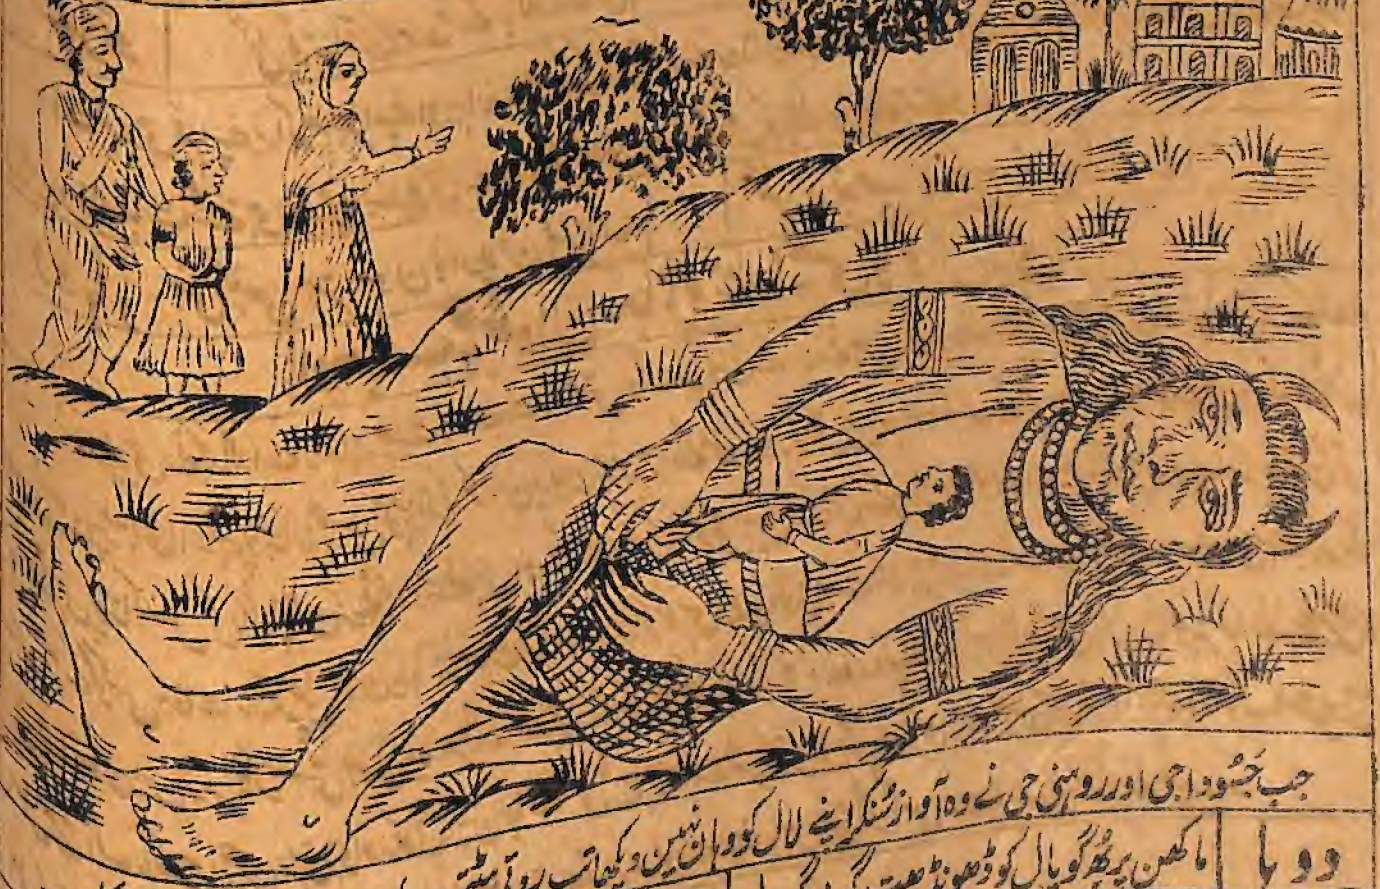 جب جسودا جی اور روہنی جی نے وہ آواز سُنکر اپنے لال کو وہان نہین دیکھا تب روتی پیٹتی
دوہا ماکھن پربھو گوپال کو ڈھونڈھت